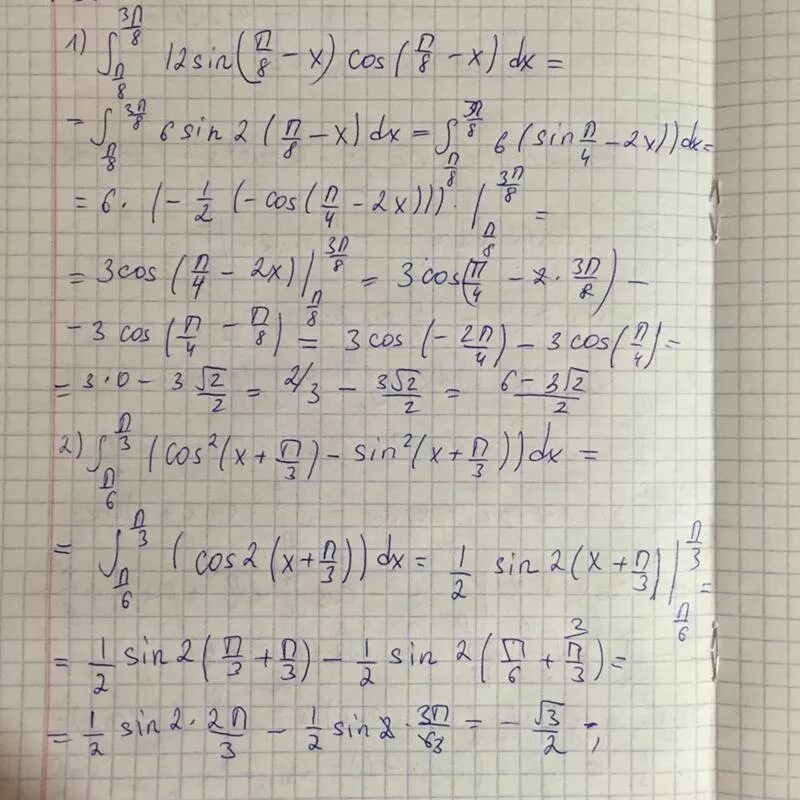 1) ∫_{π/8}^{3π/8} 12 sin(π/8 − x) cos(π/8 − x) dx =
= ∫_{π/8}^{3π/8} 6 sin 2(π/8 − x) dx = ∫_{π/8}^{3π/8} 6 (sin π/4 − 2x)) dx =
= 6 · (−1/2 (−cos(π/4 − 2x))) · |_{π/8}^{3π/8} =
= 3 cos(π/4 − 2x) |_{π/8}^{3π/8} = 3 cos(π/4 − 2 · 3π/8) −
− 3 cos(π/4 − π/8) = 3 cos(−2π/4) − 3 cos(π/4) =
= 3 · 0 − 3 √2/2 = 2/3 − 3√2/2 = (6 − 3√2)/2
2) ∫_{π/6}^{π/3} (cos²(x + π/3) − sin²(x + π/3)) dx =
= ∫_{π/6}^{π/3} (cos 2(x + π/3)) dx = 1/2 sin 2(x + π/3) |_{π/6}^{π/3} =
= 1/2 sin 2(π/3 + π/3) − 1/2 sin 2(π/6 + π/3 ²) =
= 1/2 sin 2 · 2π/3 − 1/2 sin 2 · 3π/63 = − √3/2 ;